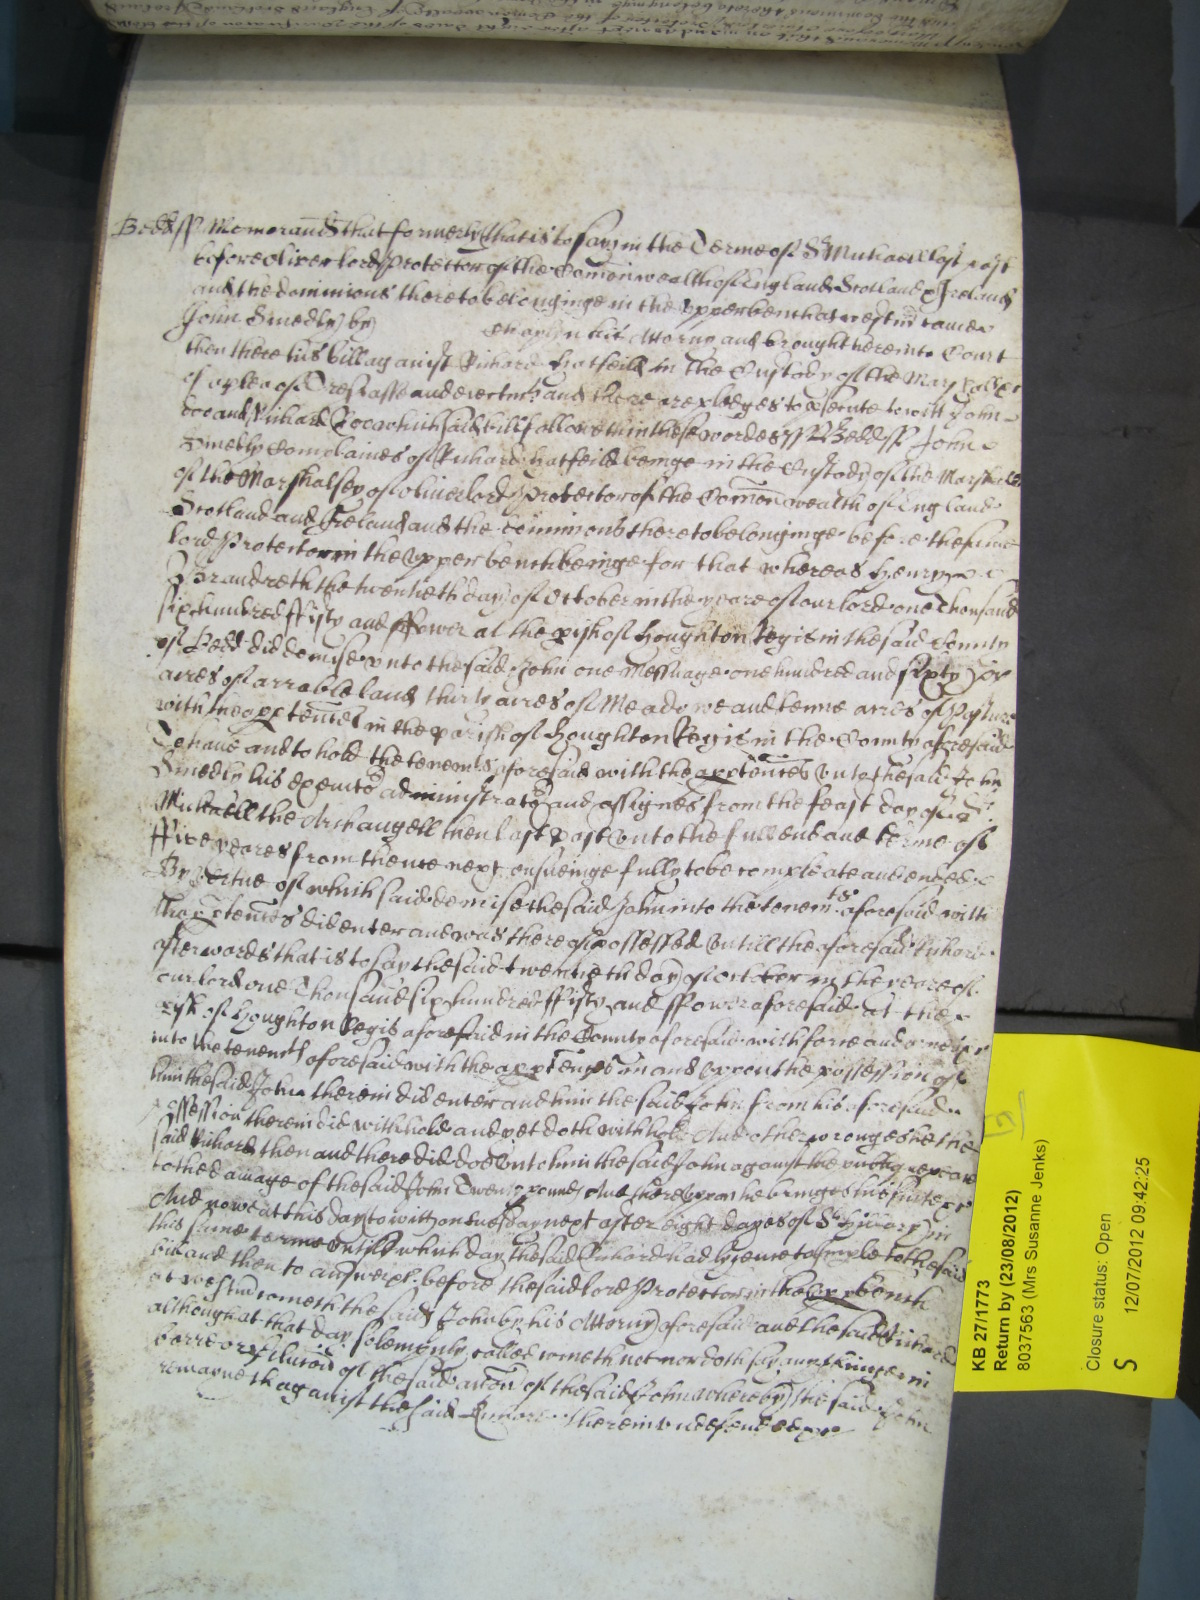 Bedd ss Memorand that formerly that is to say in the Terme of St Michaell last past
before Oliver lord Protector of the Comonwealth of England Scotland & Ireland
and the dominions thereto belonginge in the upper bench at westm came
John Smedly by his Attorny and brought here into Court
then there his bill against Richard hatfeild in the Custody of the Marshall
of a plea of Trespasse and eiectmt and there are pledges to prosecute to witt John
doe and Richard Roe which said bill followeth in these wordes ss Bedd ss John
Smedly Complaines of Richard hatfeild beinge in the Custody of the Marshall
of the Marshalsey of Oliver lord Protector of the Comon wealth of England
Scotland and Ireland and the dominions thereto belonginge before the same
lord Protector in the upper bench beinge for that whereas Henry
Brandreth the twentieth day of October in the yeare of our lord one Thousand
six hundred ffifty and ffower at the pish of Houghton Regis in the said County
of Bedd did demise unto the said John one Messuage one hundred and sixty
acres of arrable land thirty acres of Meadowe and tenne acres of Pasture
with theapptences in the parish of Houghton Regis in the County aforesaid
To have and to hold the tenemts aforesaid with the apptences unto the said John
Smedly his executors administrators and assignes from the feast day of St
Michaell the Archangell then last past unto the full end and terme of
ffive yeares from thence next ensueinge fully to be compleate and ended
By vertue of which said demise the said John into the tenemts aforesaid with
thapptences did enter and was thereof possessed untill the aforesaid Richard
afterwards that is to say the said twentieth day of October in the yeare of
our lord one Thousand six hundred ffifty and ffower aforesaid at the
pish of Houghton Regis aforesaid in the County aforesaid with force and armes
into the tenemts aforesaid with the apptences in and uppon the possession of
him the said John therein did enter and him the said John from his aforesaid
possession therein did withhold and yet doth withhold And other wronges he the
said Richard then and there did doe unto him the said John against the publique peace
to the damage of the said John Twenty pounds And thereuppon he bringes his suite &c
And nowe at this day to witt on tuesday next after eight dayes of St Hillary in
this same terme untill which day the said Richard had lycence to imple to the said
bill and then to answere &c before the said lord Protector in the upp bench
at westm cometh the said John by his Attorny aforesaid and the said Richard
although at that day solempnly called cometh not nor doth say any thinge in
barre or of the said accon of the said John whereby the said John
remayneth against the said therein undefended &c
KB 27/1773
Return by (23/08/2012)
8037563 (Mrs Susanne Jenks)
Closure status: Open
S 12/07/2012 09:42:25